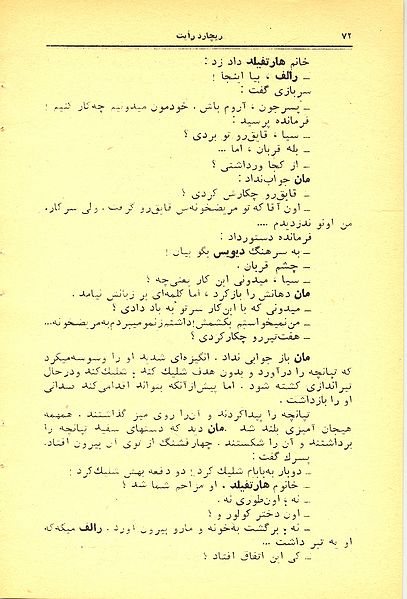 ۷۲
ریچارد رایت
خانم هارتفیلد داد زد :
ـ رالف ، بیا اینجا !
سربازی گفت :
ـ پسرجون ، آروم باش . خودمون میدونیم چه‌کار کنیم !
فرمانده پرسید :
ـ سیا ، قایق‌رو تو بردی ؟
ـ بله قربان ، اما ...
ـ از کجا ورداشتی ؟
مان جواب‌نداد :
ـ قایق‌رو چکارش کردی ؟
ـ اون آقا که تو مریضخونه‌س قایق‌رو گرفت . ولی سرکار،
من اونو ندزدیدم ....
فرمانده دستورداد :
ـ به سرهنگ دیویس بگو بیاد !
ـ چشم قربان .
ـ سیا ، میدونی این کار یعنی‌چه ؟
مان دهانش را بازکرد ، اما کلمه‌ای بر زبانش نیامد .
ـ میدونی که با این‌کار سرتو به باد دادی ؟
ـ من‌نمیخواستم بکشمش! داشتم‌زنمو میبردم‌به‌مریضخونه...
ـ هفت‌تیررو چکارکردی ؟
مان باز جوابی نداد . انگیزه‌ای شدید او را وسوسه‌میکرد
که تپانچه را درآورد و بدون هدف شلیك کند ؛ شلیك‌کند ودرحال
تیراندازی کشته شود . اما پیش‌ازآنکه بتواند اقدامی‌کند صدائی
او را بازداشت .
تپانچه را پیداکردند و آن‌را روی میز گذاشتند . همهمه
هیجان آمیزی بلند شد . مان دید که دستهای سفید تپانچه را
برداشتند و آن را شکستند . چهارفشنگ از توی آن بیرون افتاد.
پسرك گفت :
ـ دوبار به‌بابام شلیك کرد! دو دفعه بهش شلیك‌کرد !
ـ خانوم هارتفیلد ، او مزاحم شما شد ؟
ـ نه ؛ اون‌طوری نه .
ـ اون دختر کولور و ؟
ـ نه ؛ برگشت به‌خونه و مارو بیرون آورد . رالف میگه‌که
او یه تبر داشت ...
ـ کی این اتفاق افتاد ؟